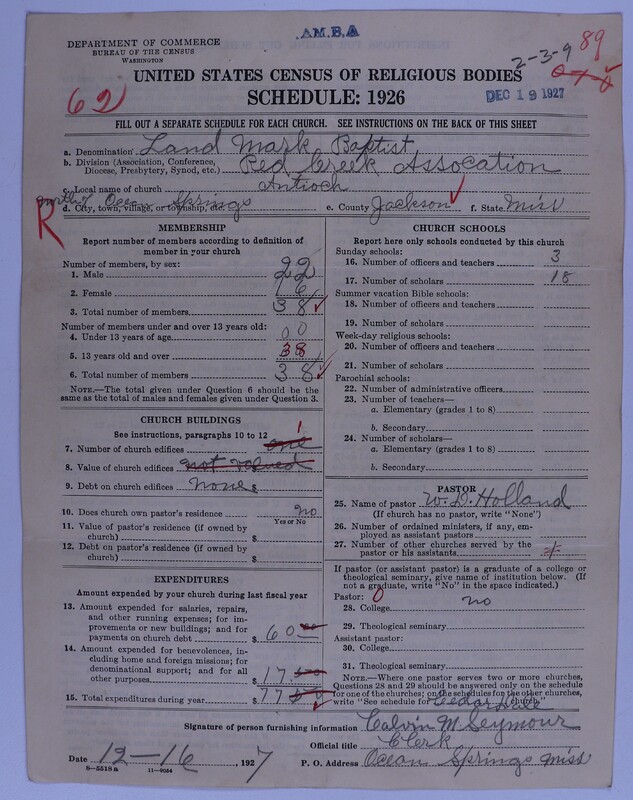 A.M.B.A
DEPARTMENT OF COMMERCE
BUREAU OF THE CENSUS
WASHINGTON
2-3-9 89
62
UNITED STATES CENSUS OF RELIGIOUS BODIES
SCHEDULE: 1926
DEC 19 1927
FILL OUT A SEPARATE SCHEDULE FOR EACH CHURCH. SEE INSTRUCTIONS ON THE BACK OF THIS SHEET
a. Denomination Land Mark Baptist
b. Division (Association, Conference, Diocese, Presbytery, Synod, etc.) Red Creek Assocation
c. Local name of church Antioch
d. City, town, village, or township, etc. Ocean Springs e. County Jackson f. State Miss
R
MEMBERSHIP
Report number of members according to definition of
member in your church
Number of members, by sex:
1. Male 22
2. Female 16
3. Total number of members 38
Number of members under and over 13 years old:
4. Under 13 years of age 00
5. 13 years old and over 38
6. Total number of members 38
NOTE.—The total given under Question 6 should be
same as the total of males and females given under Question 3.
CHURCH BUILDINGS
See instructions, paragraphs 10 to 12
7. Number of church edifices one 1
8. Value of church edifices not valued
9. Debt on church edifices none $
10. Does church own pastor's residence no
Yes or No
11. Value of pastor's residence (if owned by
church) $
12. Debt on pastor's residence (if owned by
church) $
EXPENDITURES
Amount expended by your church during last fiscal year
13. Amount expended for salaries, repairs,
and other running expenses; for im-
provements or new buildings; and for
payments on church debt $ 60 00
14. Amount expended for benevolences, in-
cluding home and foreign missions; for
denominational support; and for all
other purposes $ 17
15. Total expenditures during year $ 77
CHURCH SCHOOLS
Report here only schools conducted by this church
Sunday schools:
16. Number of officers and teachers 3
17. Number of scholars 18
Summer vacation Bible schools:
18. Number of officers and teachers
19. Number of scholars
Week-day religious schools:
20. Number of officers and teachers
21. Number of scholars
Parochial schools:
22. Number of administrative officers
23. Number of teachers—
a. Elementary (grades 1 to 8)
b. Secondary
24. Number of scholars—
a. Elementary (grades 1 to 8)
b. Secondary
PASTOR
25. Name of pastor W. D. Holland
(If church has no pastor, write "None")
26. Number of ordained ministers, if any, em-
ployed as assistant pastors
27. Number of other churches served by the
pastor or his assistants
If pastor (or assistant pastor) is a graduate of a college or
theological seminary, give name of institution below. (If
not a graduate, write "No" in the space indicated.)
Pastor: 0
28. College no
29. Theological seminary
Assistant pastor:
30. College
31. Theological seminary
NOTE.—Where one pastor serves two or more churches,
Questions 28 and 29 should be answered only on the schedule
for one of the churches; on the schedules for the other churches,
write "See schedule for Cedar Dale church."
Signature of person furnishing information Calvin M. Seymour
Official title Clerk
Date 12-16, 1927 P. O. Address Ocean Springs Miss
8-5518a 11-9054